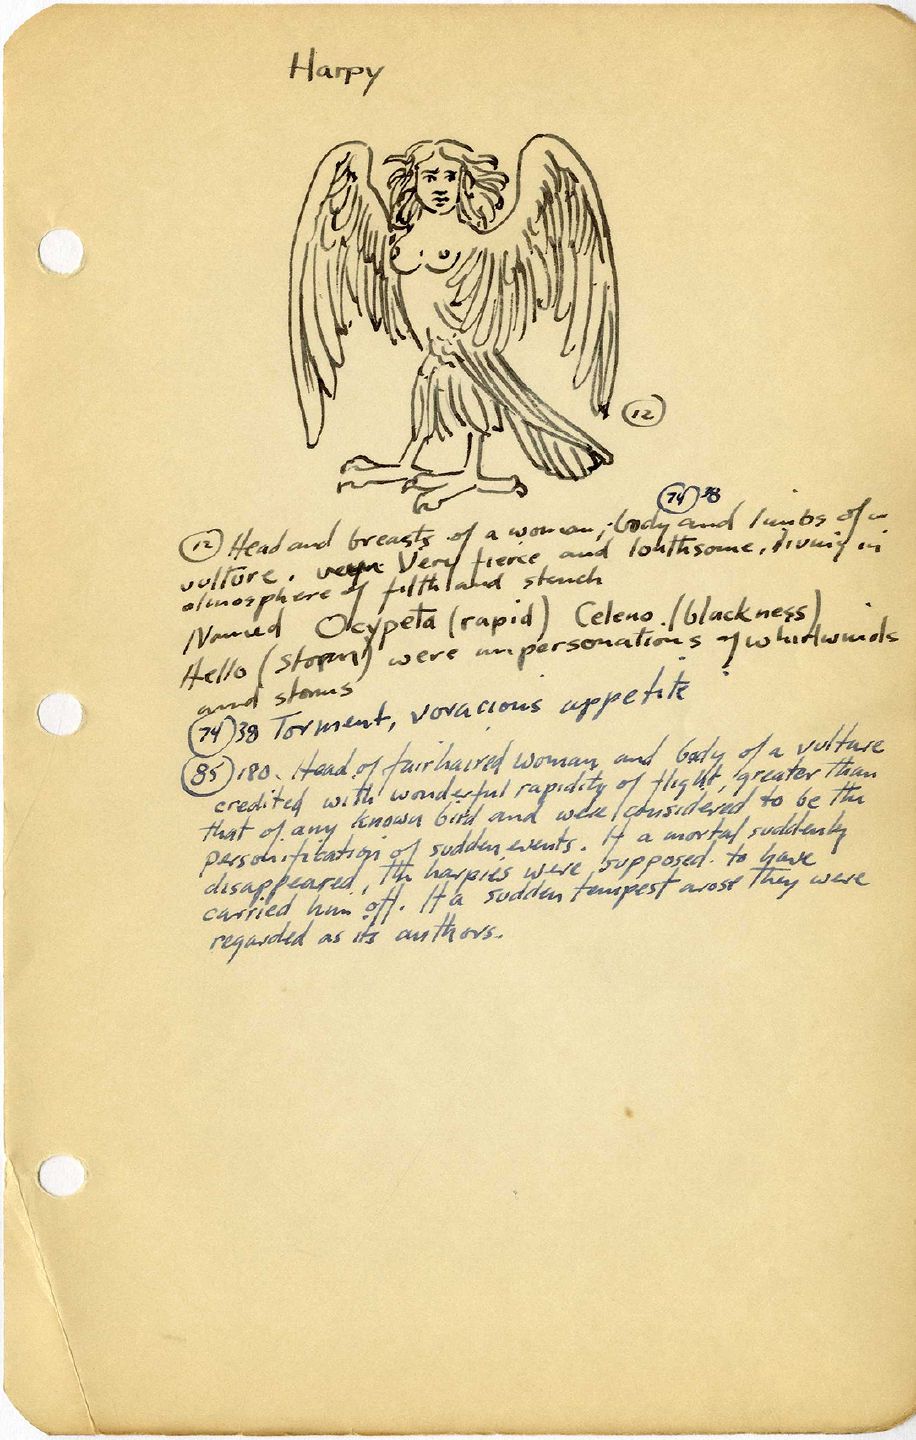 Harpy
12
74 38
12 Head and breasts of a woman; body and limbs of a
vulture. Very fierce and loathsome, living in
atmosphere of filth and stench
Named Ocypeta (rapid) Celeno (blackness)
Hello (storm) were impersonations of whirlwinds
and storms
74 38 Torment, voracious appetite
85 180. Head of fairhaired woman and body of a vulture
credited with wonderful rapidity of flight, greater than
that of any known bird and were considered to be the
personification of sudden events. If a mortal suddenly
disappeared, the harpies were supposed to have
carried him off. If a sudden tempest arose they were
regarded as its authors.